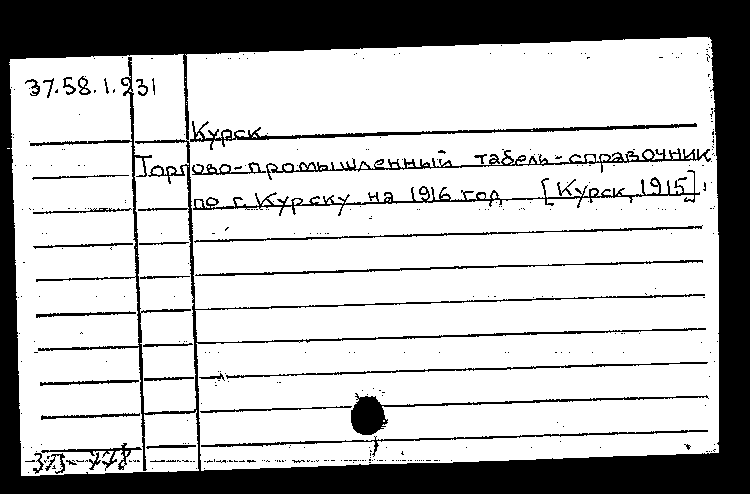 37.58.1.231
Курск
Торгово-промышленный табель-справочник
по г. Курску на 1916 год [Курск, 1915].